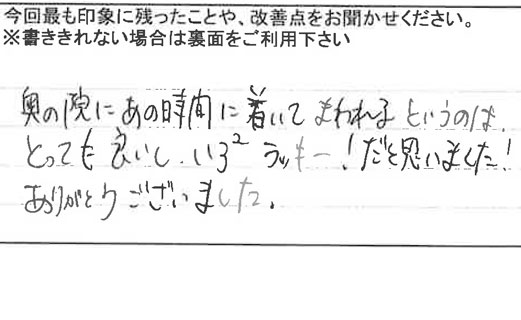 今回最も印象に残ったことや、改善点をお聞かせください。
※書ききれない場合は裏面をご利用下さい
奥の院にあの時間に着いてまわれるというのは、
とっても良いし、いろ²ラッキー!だと思いました!
ありがとうございました。